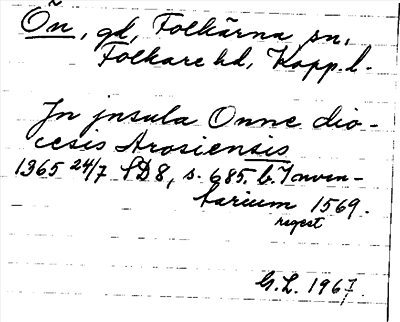 Ön, gd, Folkärna sn,
Folkare hd, Kopp. l.
In insula Onne dio-
cesis Arosiensis
1365 24/7 SD8, s. 685. b. Inven-
tarium 1569.
regest
G.L. 1967.